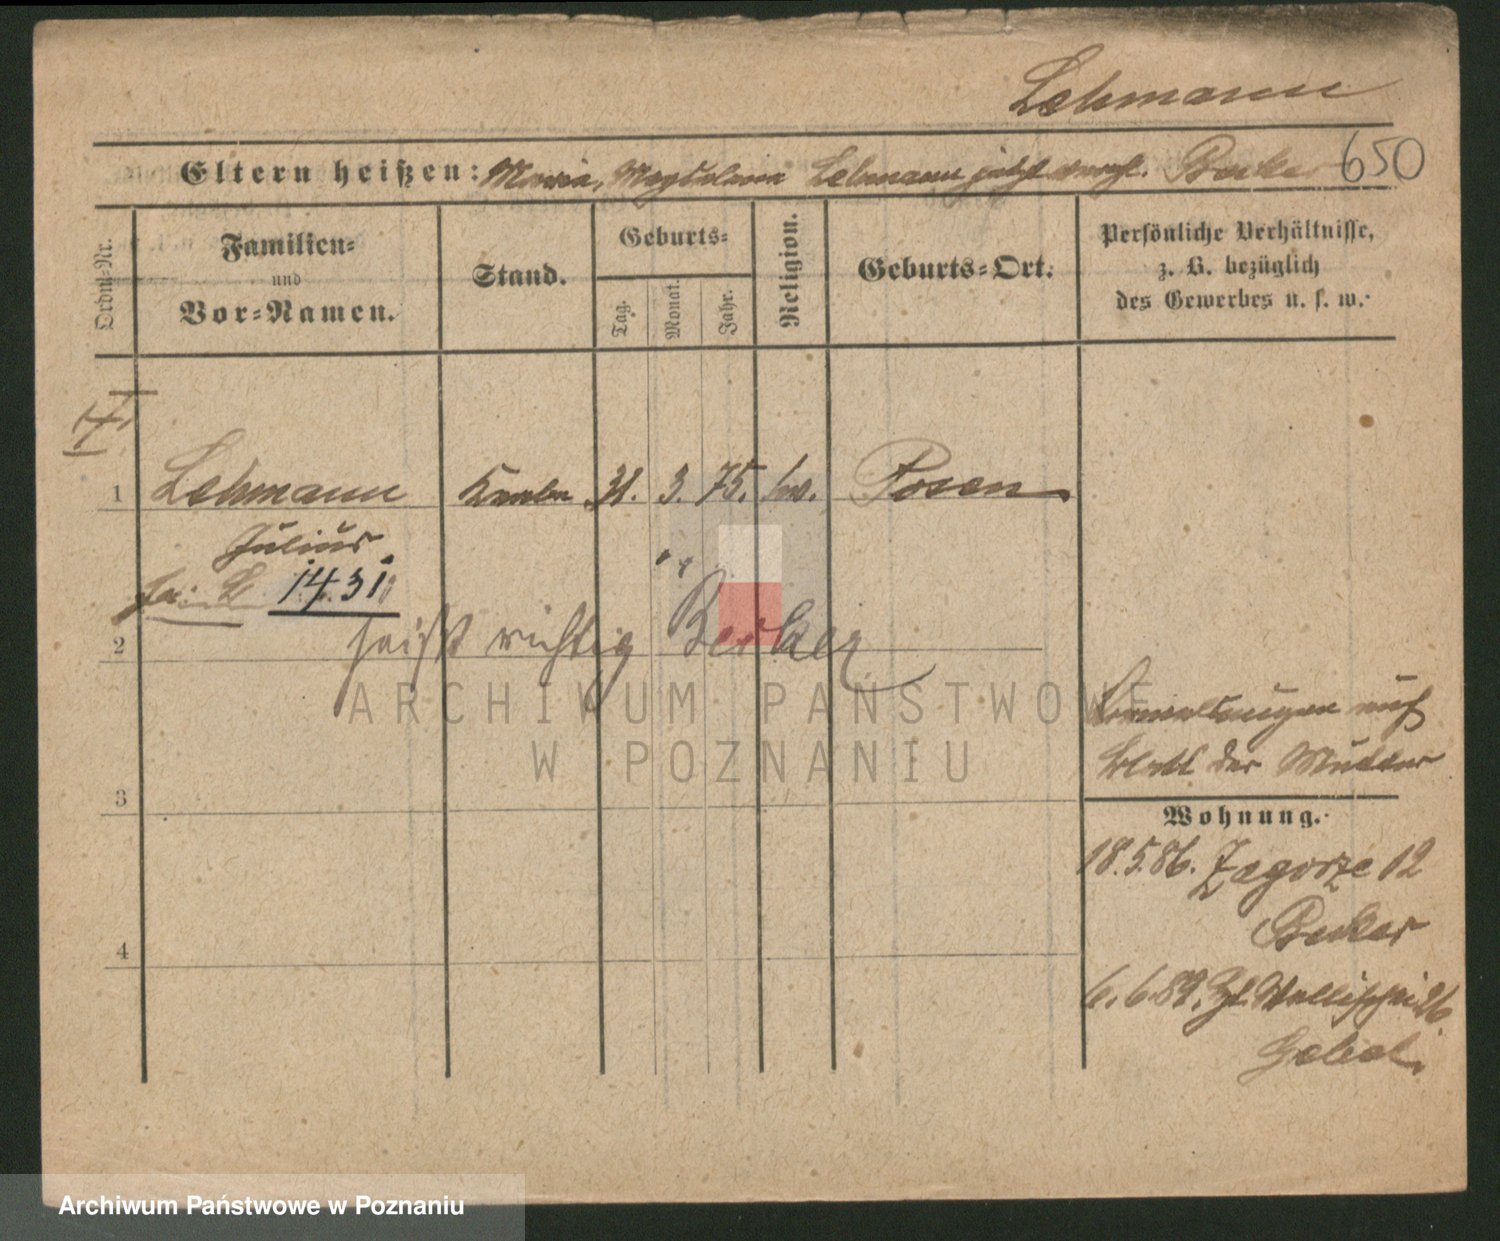 Lehmann
Eltern heißen: Maria, Magdalena Lehmann jetzt verehl. Becker 650
Ordnu-Nr.
Familien-
und
Vor-Namen.
Stand.
Geburts-
Tag.
Monat.
Jahr.
Religion.
Geburts-Ort.
Persönliche Verhältnisse,
z. B. bezüglich
des Gewerbes u. s. w.
1 Lehmann Knabe 31. 3. 75. ev. Posen
Julius
1431
2 heißt richtig Becker
ARCHIWUM PAŃSTWOWE
W POZNANIU
auf
Blatt der Mutter
3
Wohnung.
18.5.86. Zagorze 12
Becker
4
6.6.89.
Archiwum Państwowe w Poznaniu